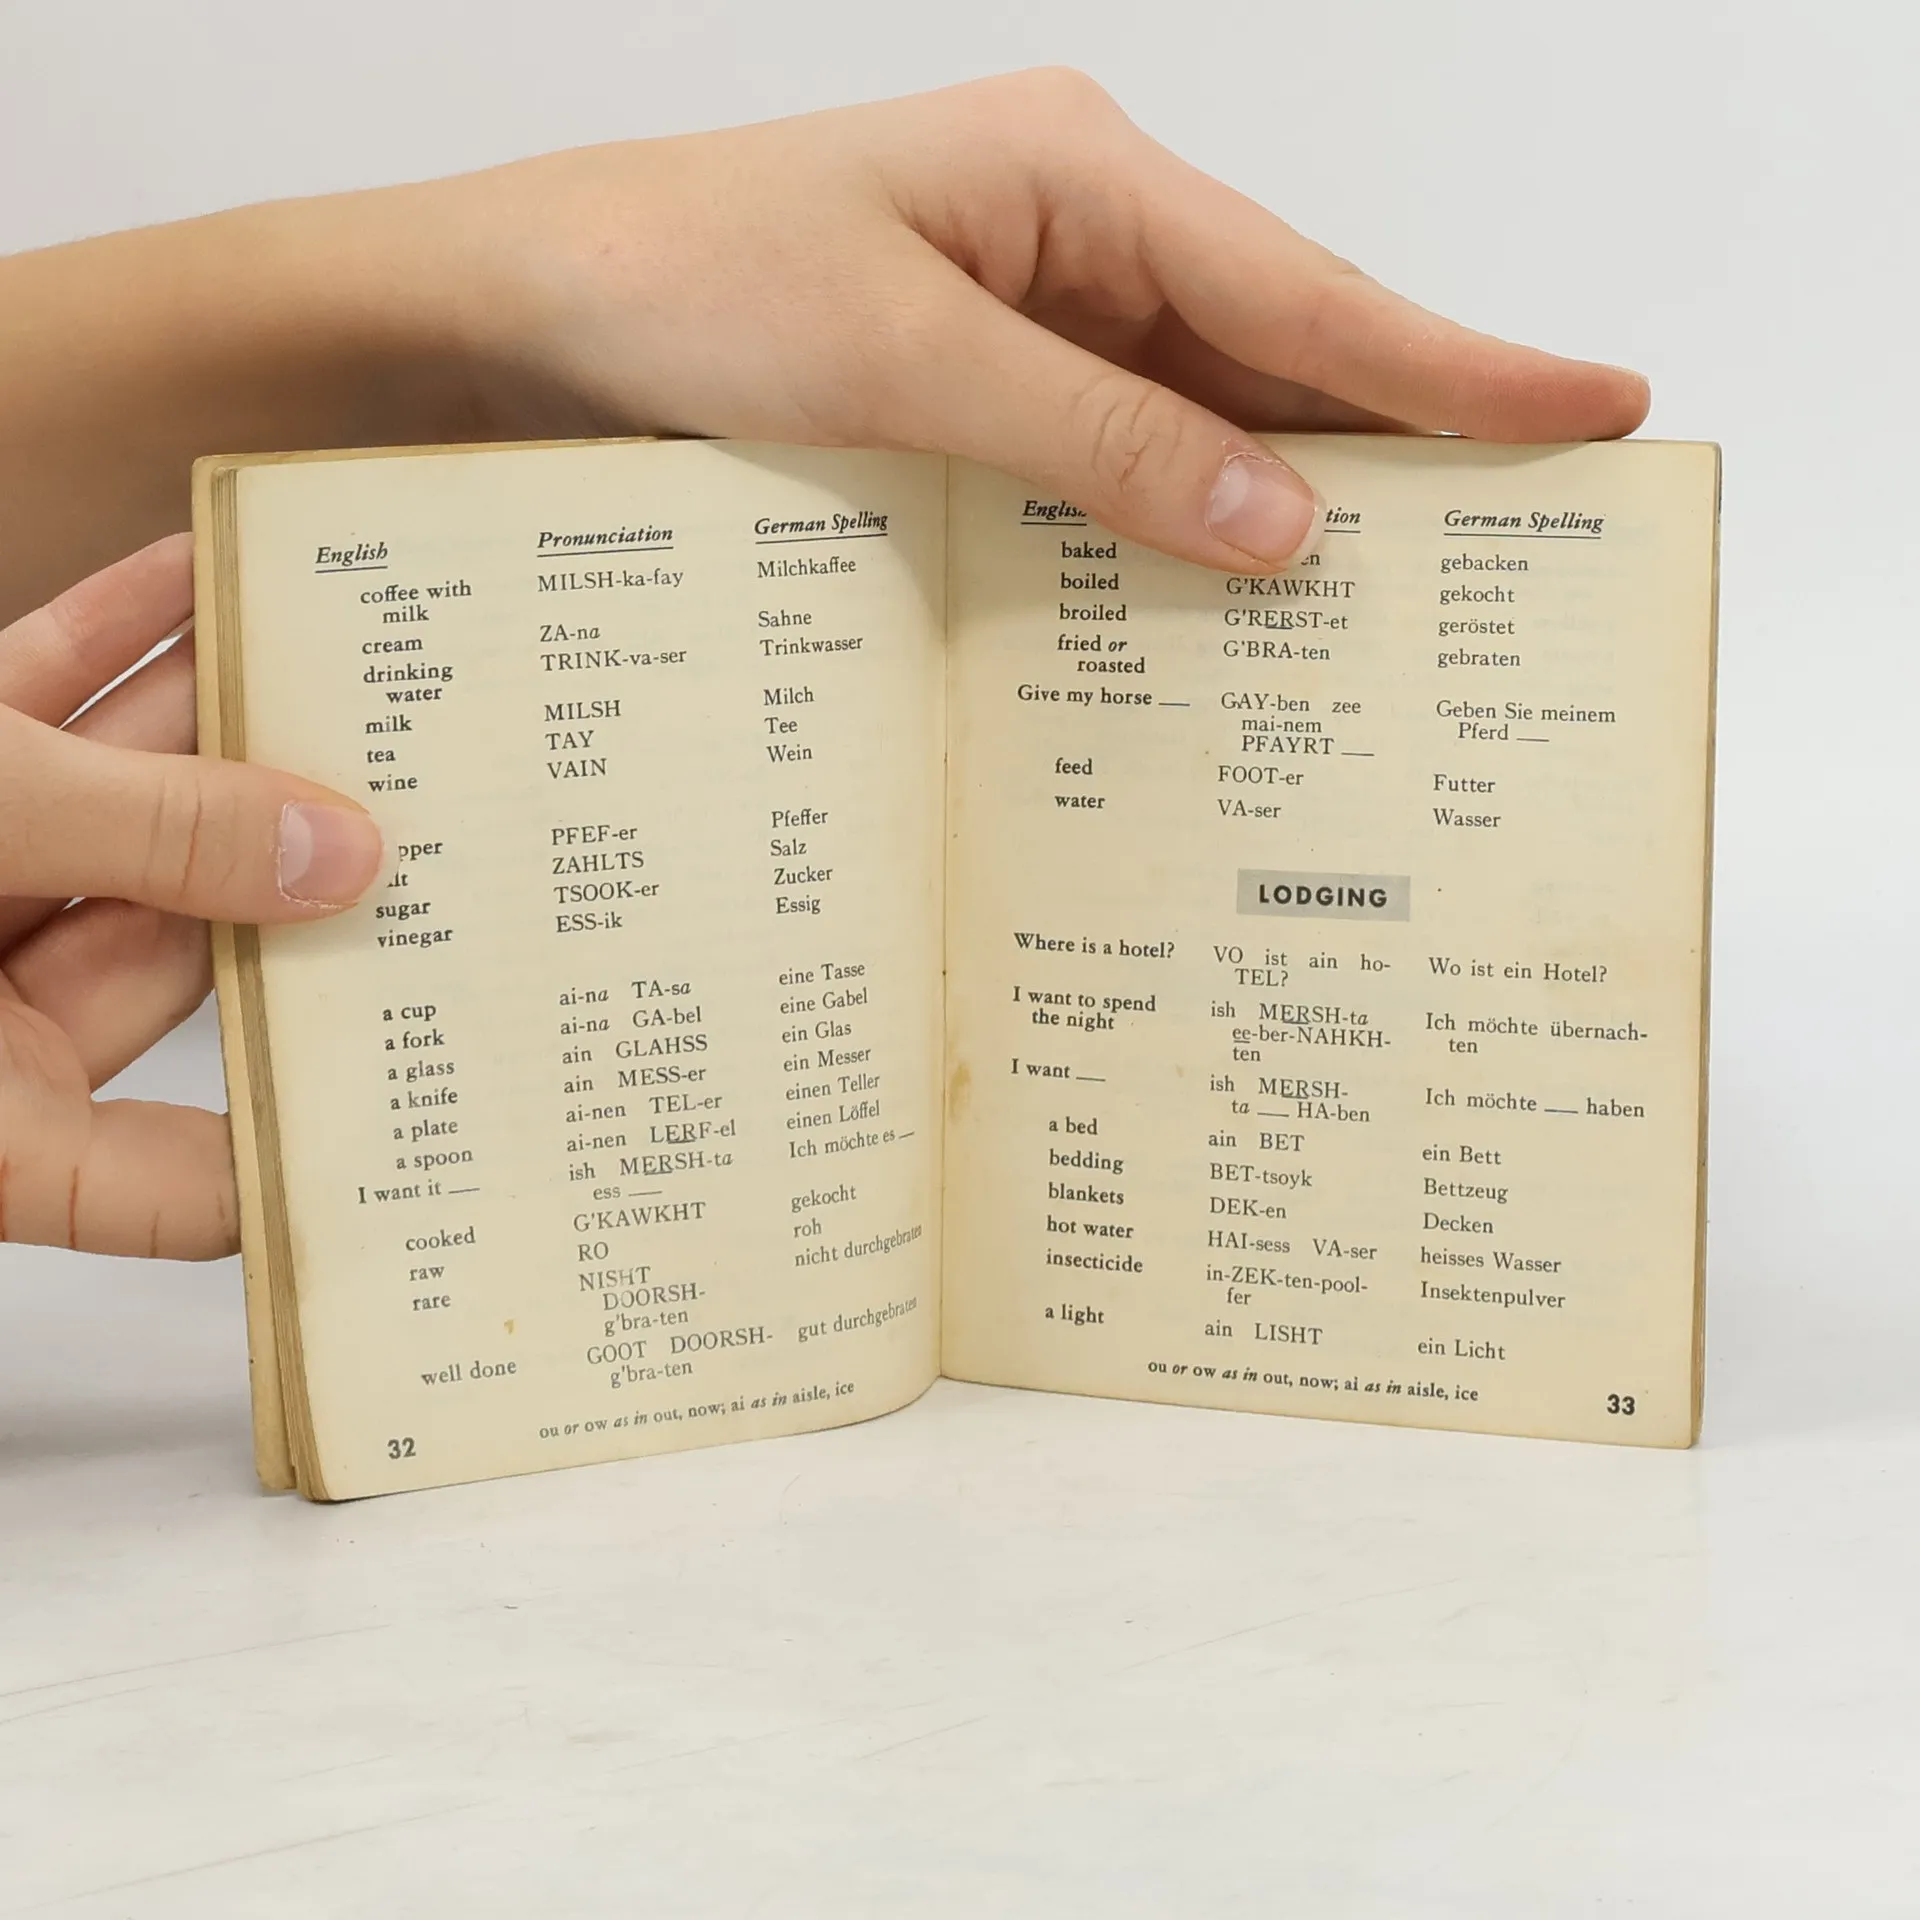 English Pronunciation German Spelling
coffee with MILSH-ka-fay Milchkaffee
milk
cream ZA-na Sahne
drinking TRINK-va-ser Trinkwasser
water
milk MILSH Milch
tea TAY Tee
wine VAIN Wein
PFEF-er Pfeffer
ZAHLTS Salz
sugar TSOOK-er Zucker
vinegar ESS-ik Essig
a cup ai-na TA-sa eine Tasse
a fork ai-na GA-bel eine Gabel
a glass ain GLAHSS ein Glas
a knife ain MESS-er ein Messer
a plate ai-nen TEL-er einen Teller
a spoon ai-nen LERF-el einen Löffel
I want it ___ ish MERSH-ta Ich möchte es ___
ess ___
cooked G'KAWKHT gekocht
raw RO roh
rare NISHT nicht durchgebraten
DOORSH-
g'bra-ten
well done GOOT DOORSH- gut durchgebraten
g'bra-ten
ou or ow as in out, now; ai as in aisle, ice
32
English German Spelling
baked gebacken
boiled G'KAWKHT gekocht
broiled G'RERST-et geröstet
fried or G'BRA-ten gebraten
roasted
Give my horse ___ GAY-ben zee Geben Sie meinem
mai-nem Pferd ___
PFAYRT ___
feed FOOT-er Futter
water VA-ser Wasser
LODGING
Where is a hotel? VO ist ain ho- Wo ist ein Hotel?
TEL?
I want to spend ish MERSH-ta Ich möchte übernach-
the night ee-ber-NAHKH- ten
ten
I want ___ ish MERSH- Ich möchte ___ haben
ta ___ HA-ben
a bed ain BET ein Bett
bedding BET-tsoyk Bettzeug
blankets DEK-en Decken
hot water HAI-sess VA-ser heisses Wasser
insecticide in-ZEK-ten-pool- Insektenpulver
fer
a light ain LISHT ein Licht
ou or ow as in out, now; ai as in aisle, ice
33